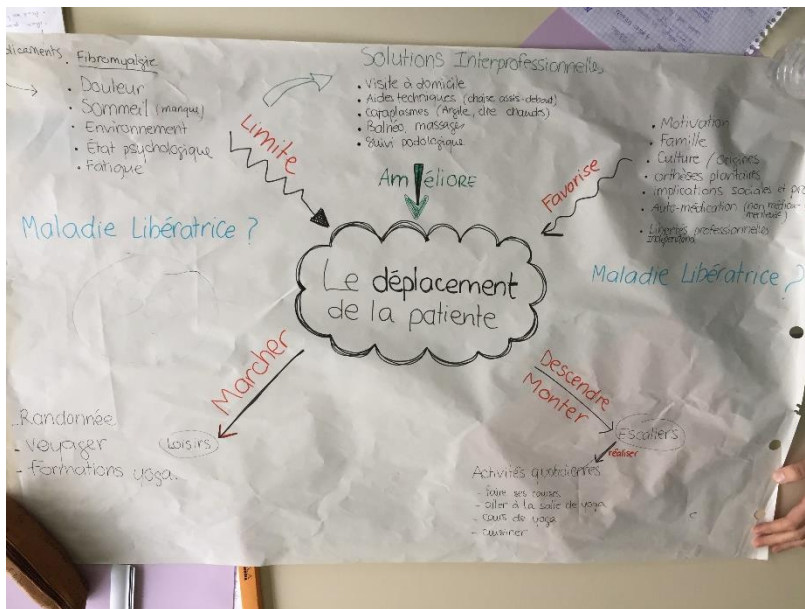 Fibromyalgie
• Douleur
• Sommeil (manque)
• Environnement
• État psychologique
• Fatigue
Limite
Solutions Interprofessionnelles
• Visite à domicile
• Aides techniques (chaise assis-debout)
• Cataplasmes (Argile, cire chaudes)
• Balnéo, massages
• Suivi podologique
AMÉLIORE
• Motivation
• Famille
• Culture / Origines
• orthèses plantaires
• implications sociales et
• Auto-médication
• Libertés professionnelles
Indépendant
Favorise
Maladie Libératrice ?
Maladie Libératrice ?
Le déplacement
de la patiente
Marcher
Loisirs
Randonnée
- voyager
- formations yoga
Descendre
Monter
Escaliers
réaliser
Activités quotidiennes
- faire ses courses
- aller à la salle de yoga
- cours de yoga
- cuisiner